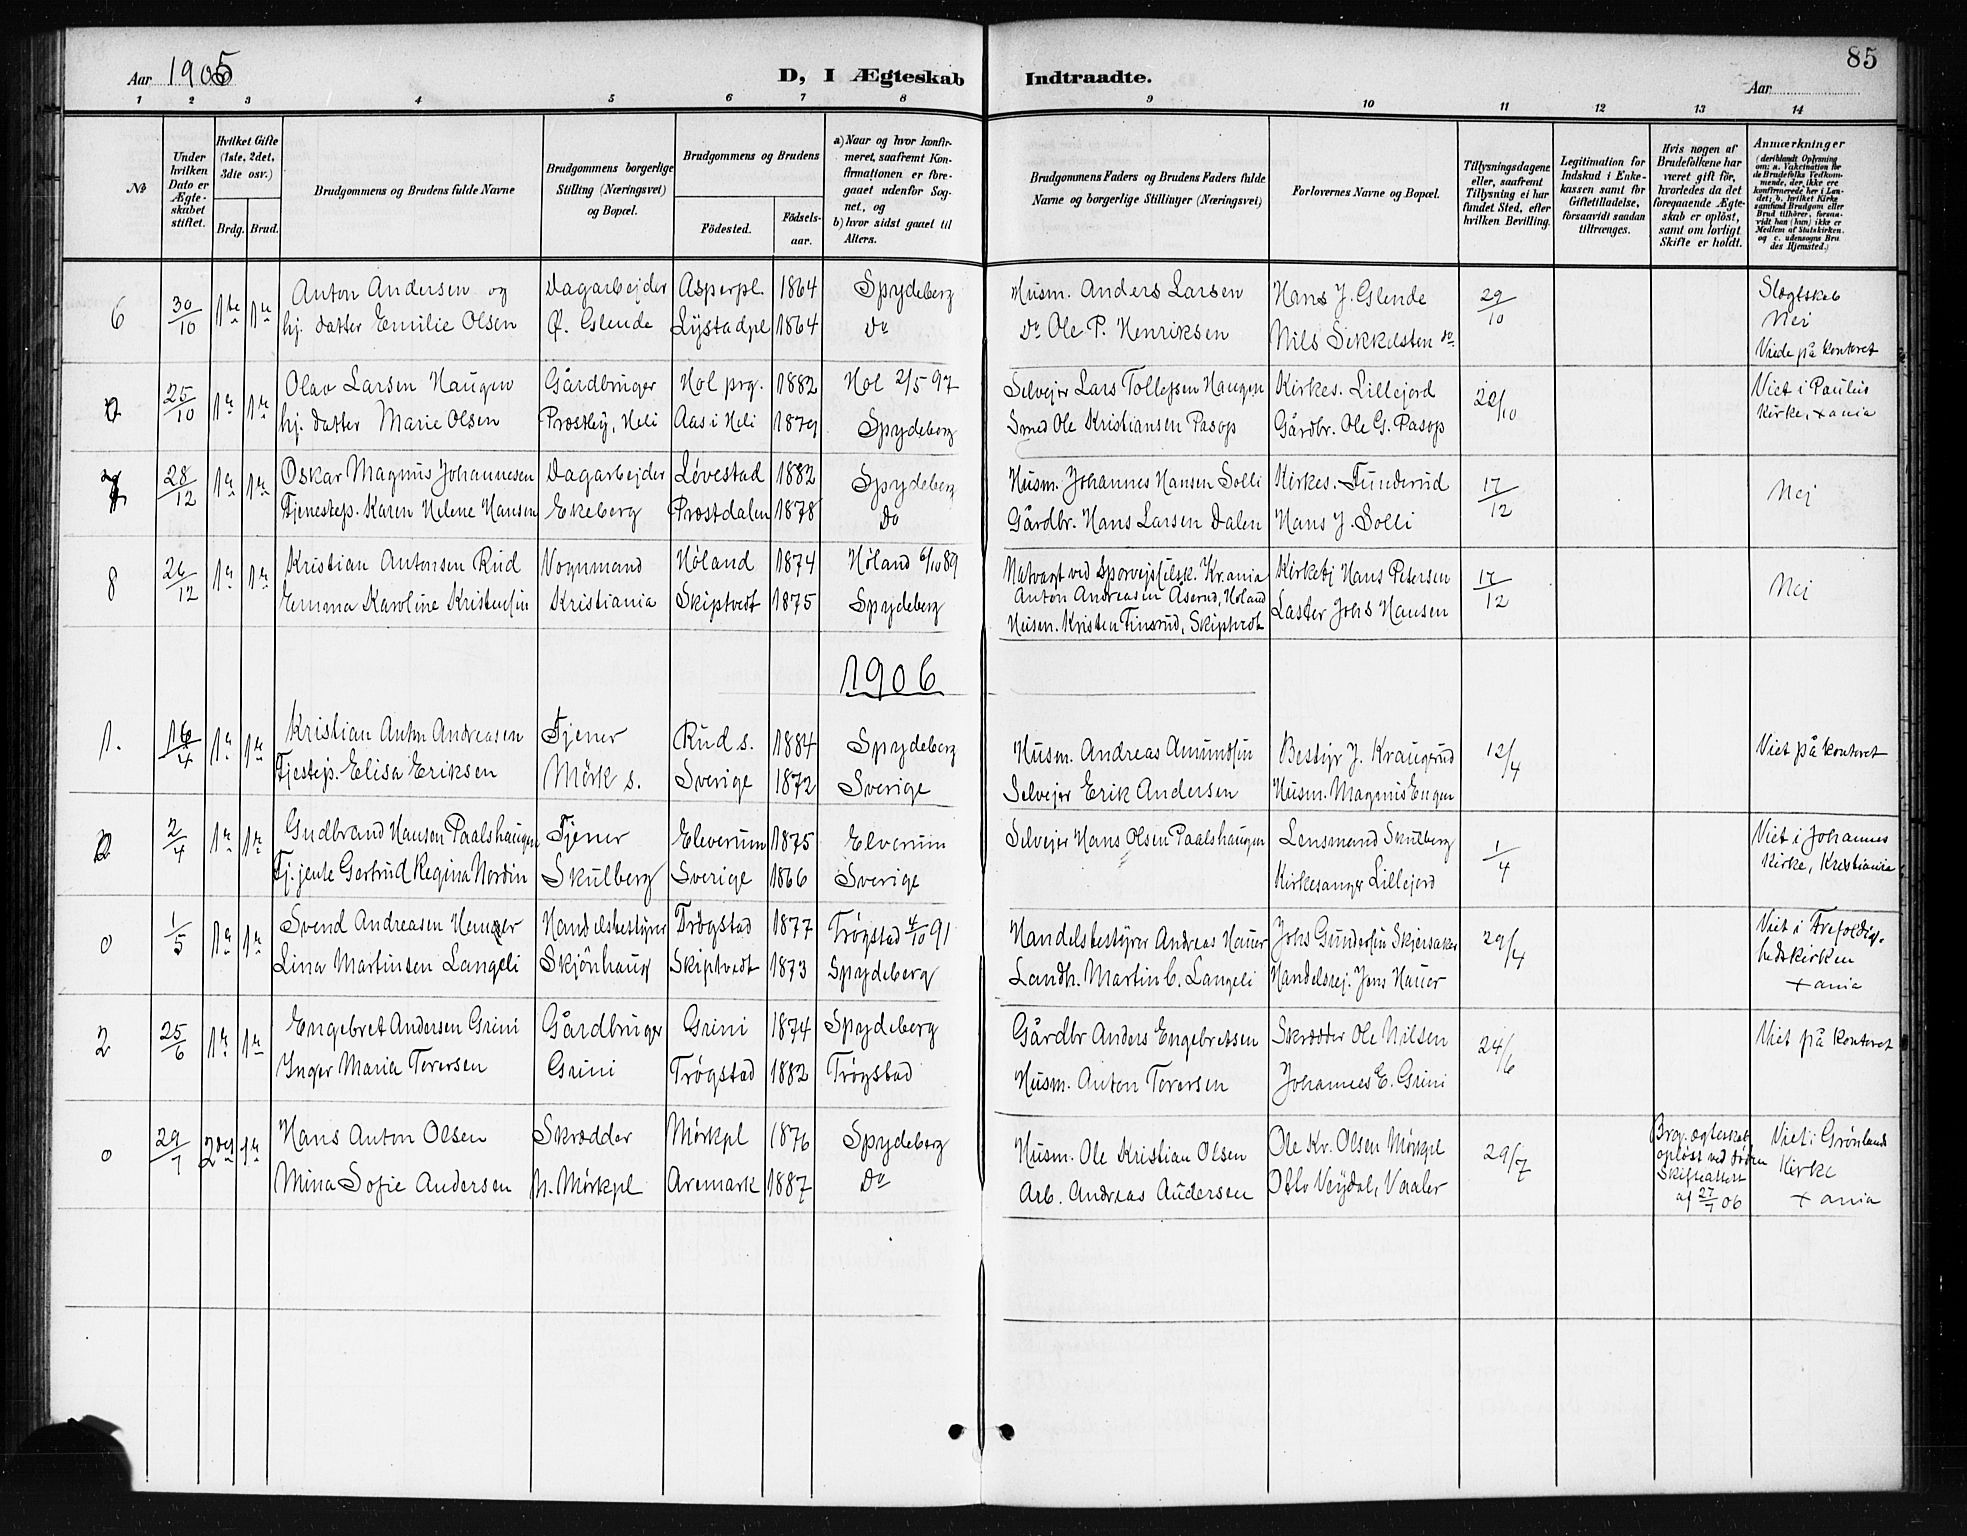 Aar 1905
D, I Ægteskab Indtraadte.
85
Aar
1 2 3 4 5 6 7 8 9 10 11 12 13 14
No
Under hvilken Dato er Ægteskabet stiftet.
Hvilket Gifte (1ste, 2det, 3die osv.)
Brdg. Brud.
Brudgommens og Brudens fulde Navne
Brudgommens borgerlige Stilling (Næringsvei) og Bopæl.
Brudgommens og Brudens
Födested.
Födselsaar.
a) Naar og hvor konfirmeret, saafremt Konfirmationen er foregaaet udenfor Sognet, og
b) hvor sidst gaaet til Alters.
Brudgommens Faders og Brudens Faders fulde Navne og borgerlige Stillinger (Næringsvei)
Forlovernes Navne og Bopæl.
Tillysningsdagene eller, saafremt Tillysning ei har fundet Sted, efter hvilken Bevilling.
Legitimation for Indskud i Enkekassen samt for Giftetilladelse, forsaavidt saadan tiltrænges.
Hvis nogen af Brudefolkene har været gift før, hvorledes da det foregaaende Ægteskab er opløst, samt om lovligt Skifte er holdt.
Anmærkninger
6 30/10 1te 1te Anton Andersen og Dagarbejder Asperpl. 1864 Spydeberg Husm. Anders Larsen Hans J. Glende 29/10 Slægtskab
hj. datter Emilie Olsen Ø. Glende Lystadpl 1864 Do Do Ole P. Henriksen Nils Sikkelsten do. Nei
Viede på kontoret
0 25/10 1te 1te Olav Larsen Haugen Gårdbruger Hol prg. 1882 Hol 2/5 97 Selvejer Lars Tollefsen Haugen Kirkes. Lillejord 22/10 Viet i Paulus
hj. datter Marie Olsen Prestby, Heli Aas i Heli 1879 Spydeberg Smed Ole Kristiansen Pasop Gårdbr. Ole G. Pasop Kirke, Xania
7 28/12 1te 1te Oskar Magnus Johannesen Dagarbejder Løvestad 1882 Spydeberg Husm. Johannes Hansen Solli Kirkes. Funderud 17/12 Nej
Tjenestep. Karen Helene Hansen Ekeberg Prestdalen 1878 Do Gårdbr. Hans Larsen Dalen Hans J. Solli
8 26/12 1te 1te Kristian Antonsen Rud Vognmand Høland 1874 Høland 6/10 89 Natvagt ved Sporvejsselsk. Kr.ania Kirketj Hans Petersen 17/12 Nej
Anton Andreasen Aserud, Høland
Emma Karoline Kristensen Kristiania Skiptvedt 1875 Spydeberg Husm. Kristen Finsrud, Skiptvedt Laster Johs Hansen
1906
1. 16/4 1te 1te Kristian Anton Andreasen Tjener Rud s. 1884 Spydeberg Husm. Andreas Amundsen Bestyr J. Kraugerud 12/4 Viet på kontoret
Tjestep. Elisa Eriksen Mörk s. Sverige 1872 Sverige Selvejer Erik Andersen Husm. Magnus Engen
2 2/4 1te 1te Gudbrand Hansen Paalshaugen Tjener Eleverum 1875 Elverum Selvejer Hans Olsen Paalshaugen Lensmand Skulberg 1/4 Viet i Johannes
Tj. jente Gertrud Regina Nordin Skulberg Sverige 1866 Sverige Kirkesanger Lillejord Kirke, Kristiania
0 1/5 1te 1te Svend Andreasen Handelsbestyrer Trøgstad 1877 Trøgstad 4/10 91 Handelsbestyrer Andreas Hauer Johs Gundersen Skjersaker 29/4 Viet i Trefoldig-
Lina Martinsen Langeli Skjönhaug Skiptvedt 1873 Spydeberg Landh. Martin C. Langeli Handelsrej. Jens Hauer hedskirken
Xania
2 25/6 1te 1te Engebret Andersen Grini Gårdbruger Grini 1874 Spydeberg Gårdbr Anders Engebretsen Skrædder Ole Nilsen 24/6 Viet på kontoret
Inger Maria Torersen Grini Trøgstad 1882 Trøgstad Husm. Anton Torersen Johannes E. Grini
0 29/7 2det 1te Hans Anton Olsen Skrædder Mörkpl 1876 Spydeberg Husm. Ole Kristian Olsen Ole Kr. Olsen Mörkpl 29/7 Brg. ægteskab Viet i Grønlands
opløst ved døden
Mina Sofie Andersen N. Mörkpl Aremark 1887 Do Arb. Andreas Andersen Otto Vejdal, Vaaler Skifteattest Kirke
af 27/7 06 Xania